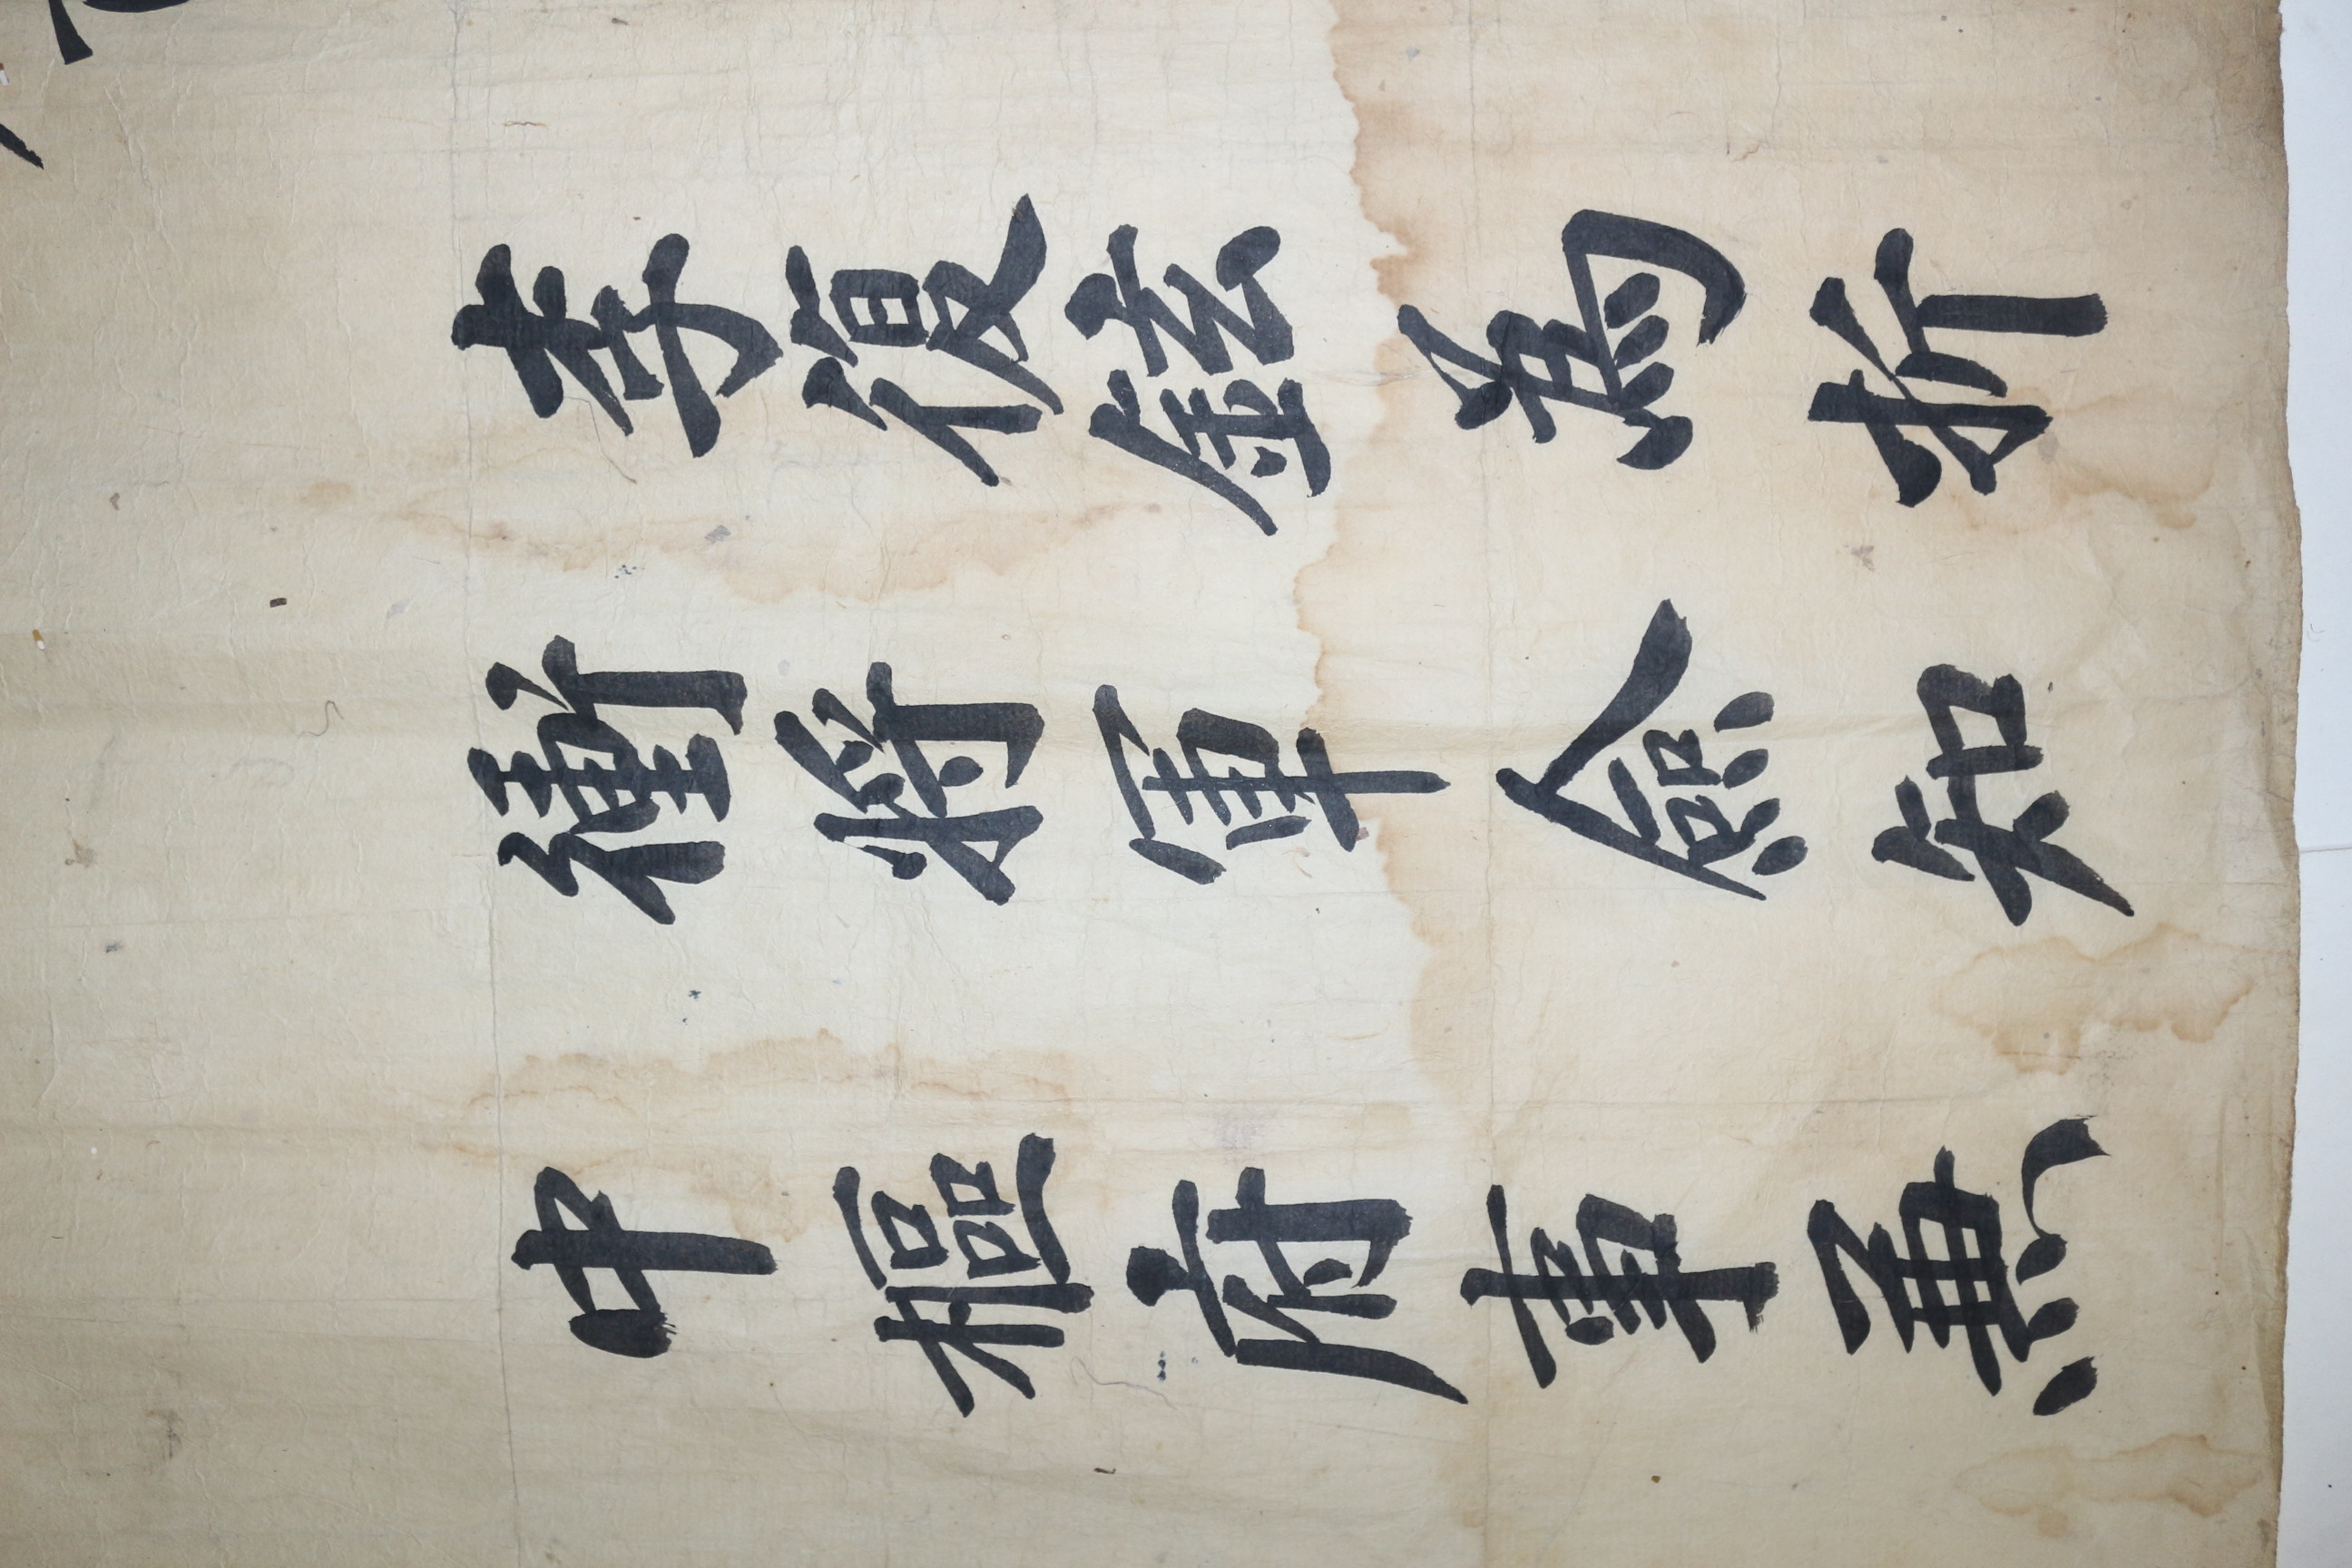 李復鉉爲折
衝將軍僉知
中樞府事兼